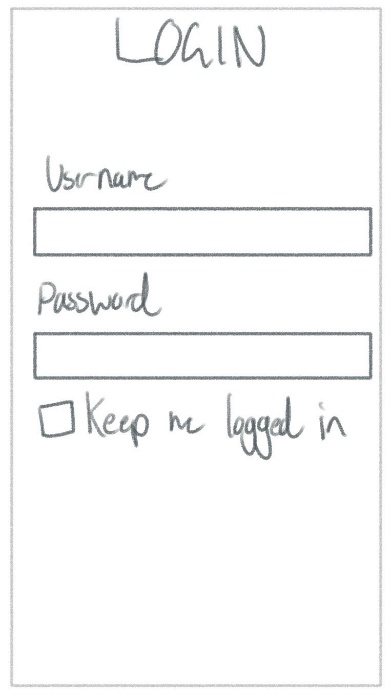 LOGIN
Username
Password
Keep me logged in